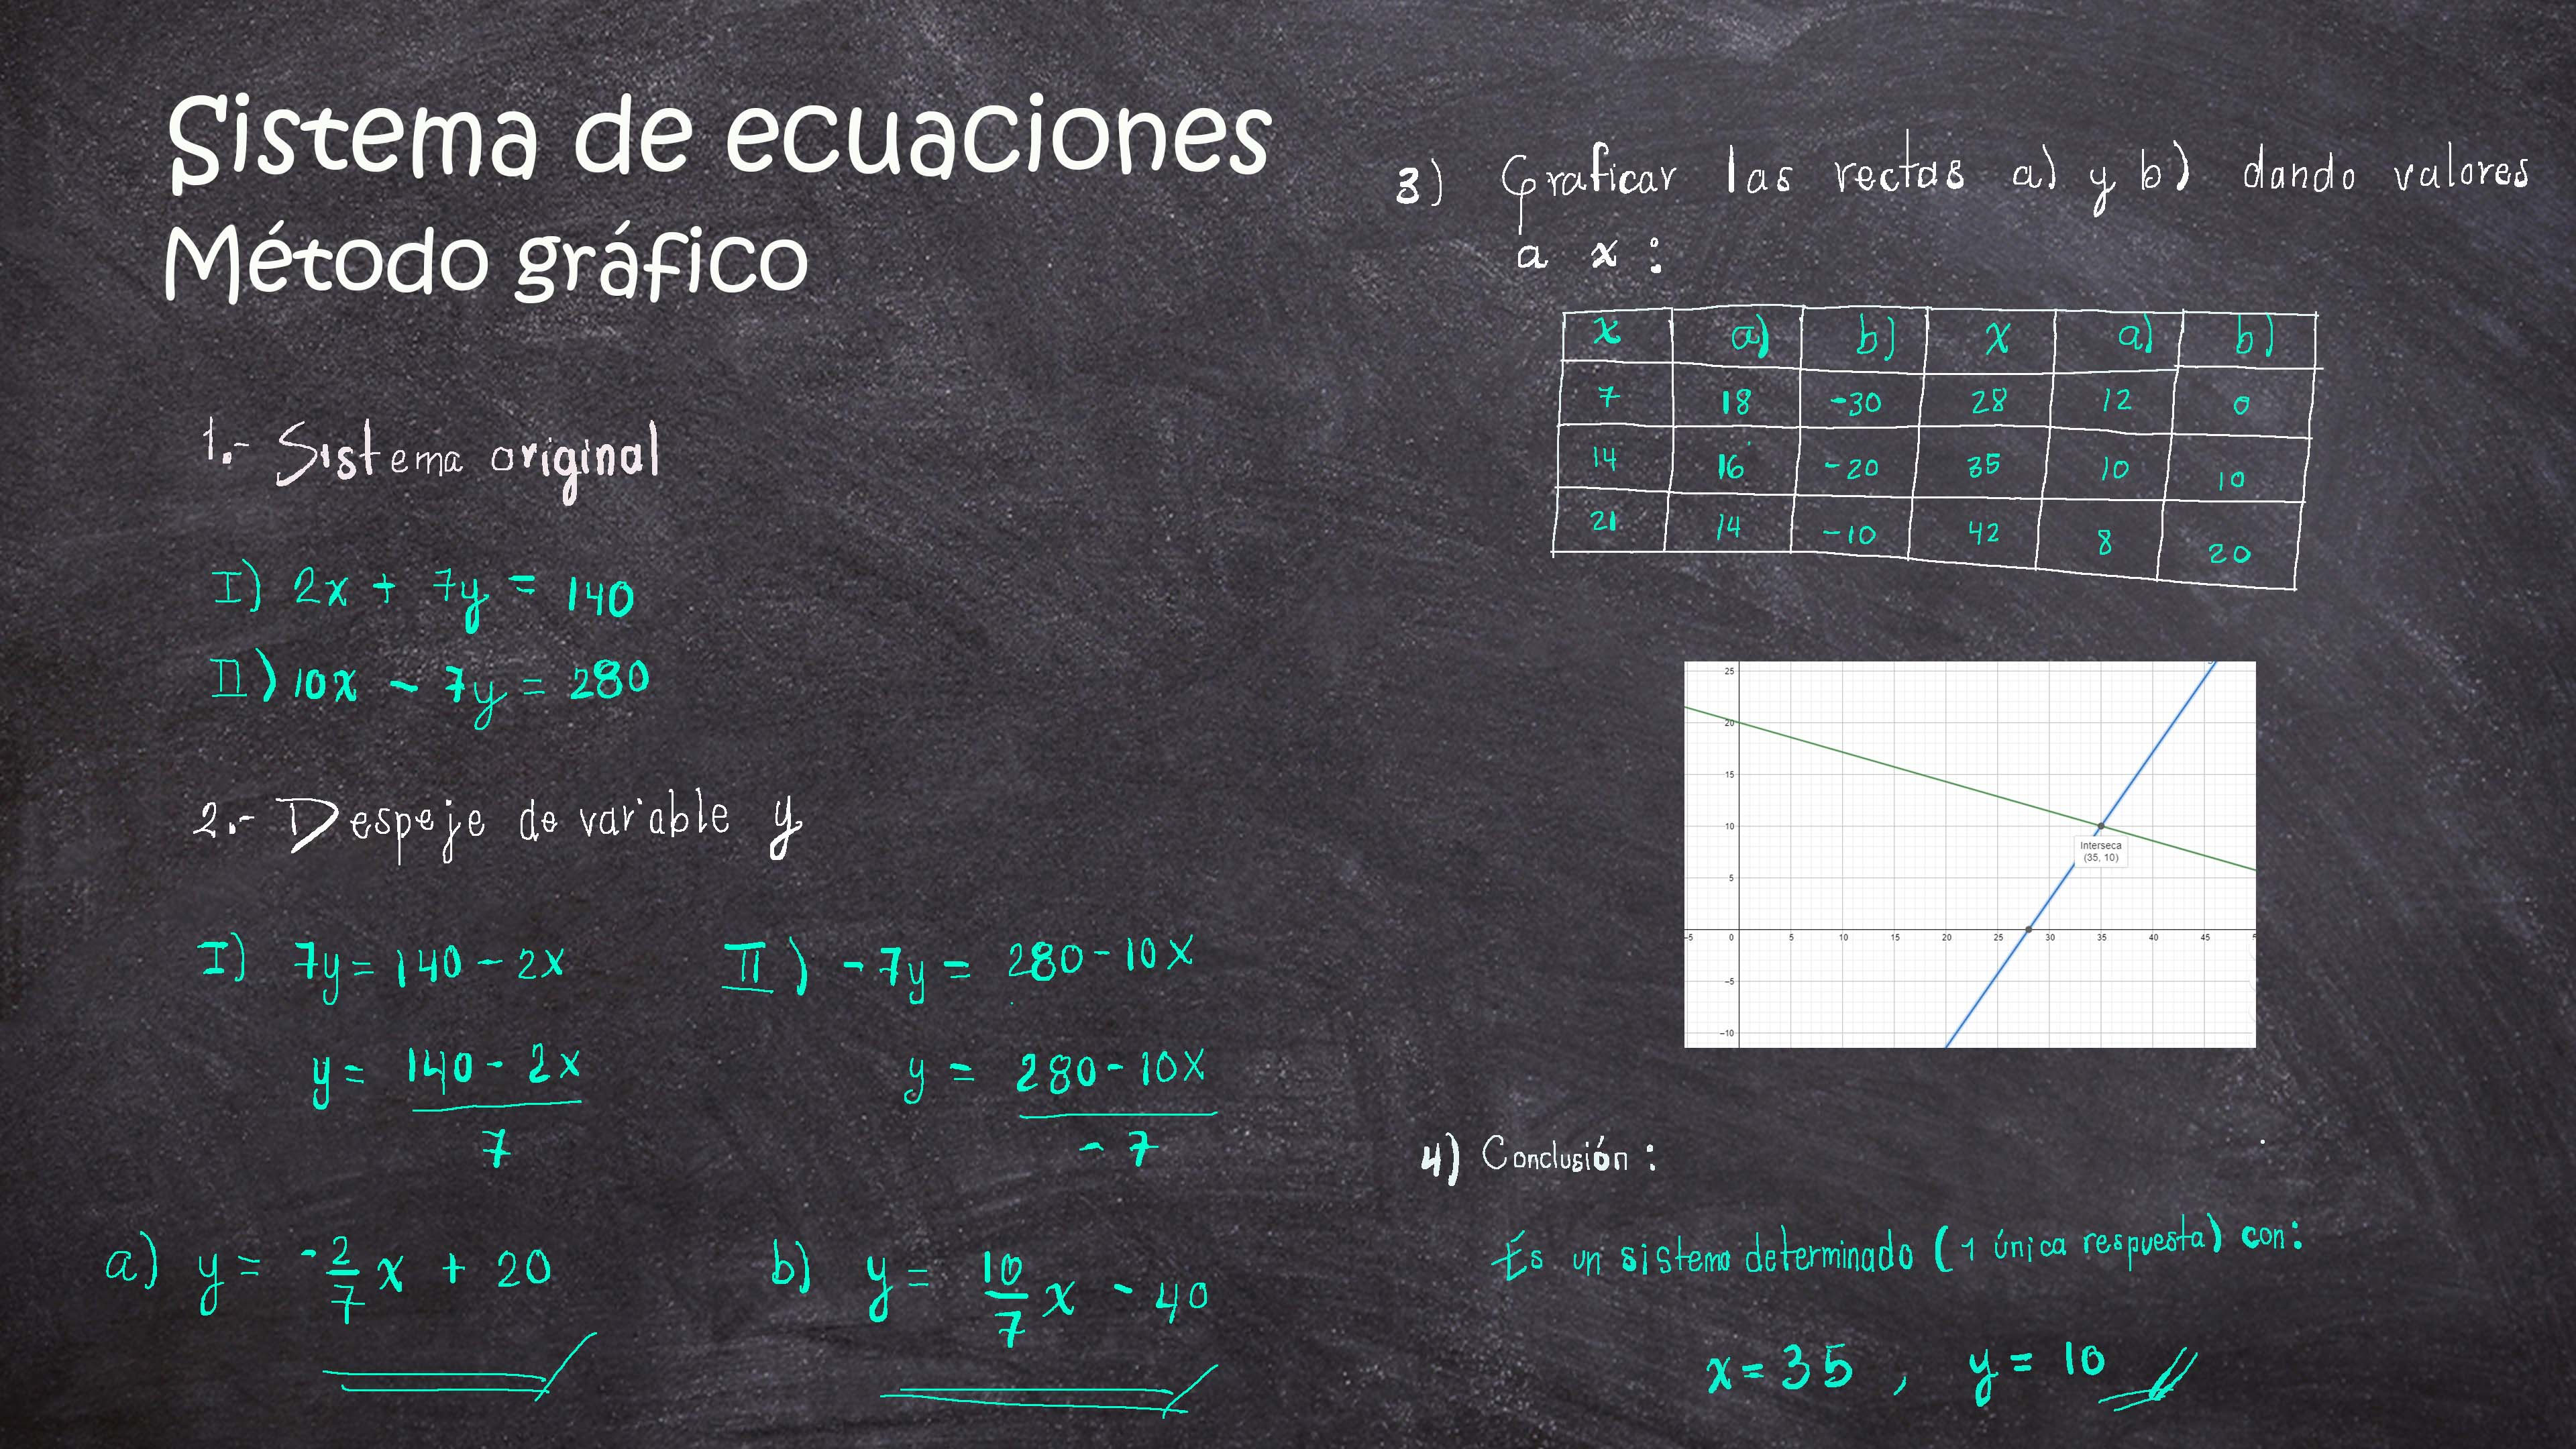 Sistema de ecuaciones
Método gráfico
1.- Sistema original
I) 2x + 7y = 140
II) 10x - 7y = 280
2.- Despeje de variable y
I) 7y = 140 - 2x
y = 140 - 2x / 7
a) y = -2/7 x + 20
II) -7y = 280 - 10x
y = 280 - 10x / -7
b) y = 10/7 x - 40
3) Graficar las rectas a) y b) dando valores
a x :
x a) b) x a) b)
7 18 -30 28 12 0
14 16 -20 35 10 10
21 14 -10 42 8 20
25
20
15
10
5
-5
-10
-5 0 5 10 15 20 25 30 35 40 45
Interseca
(35, 10)
4) Conclusión :
Es un sistema determinado (1 única respuesta) con:
x = 35 , y = 10